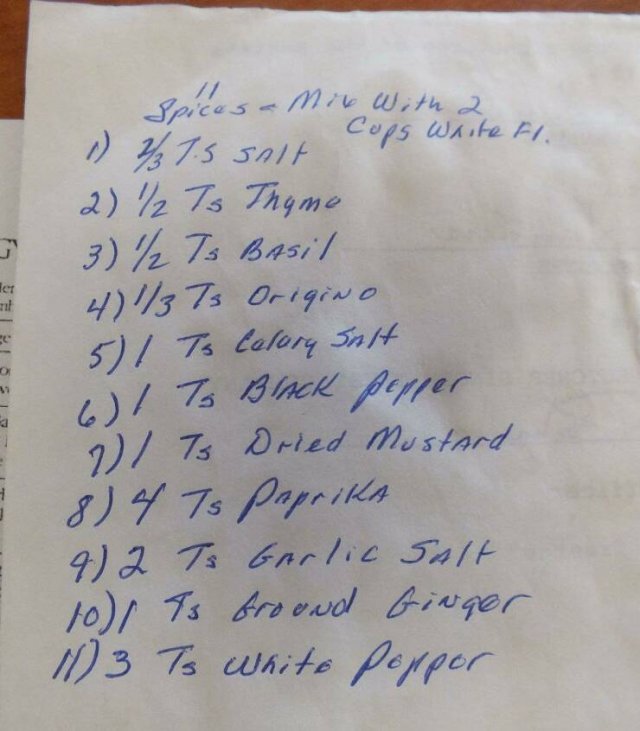 11
Spices - Mix With 2
Cups White Fl.
1) 2/3 TS SAlt
2) 1/2 Ts Thyme
3) 1/2 Ts BASil
4) 1/3 Ts OrigiNo
5) 1 Ts Celary SAlt
6) 1 Ts BlAcK Pepper
7) 1 Ts Dried MustArd
8) 4 Ts PApriKA
9) 2 Ts GArlic SAlt
10) 1 Ts Ground Ginger
11) 3 Ts White Pepper